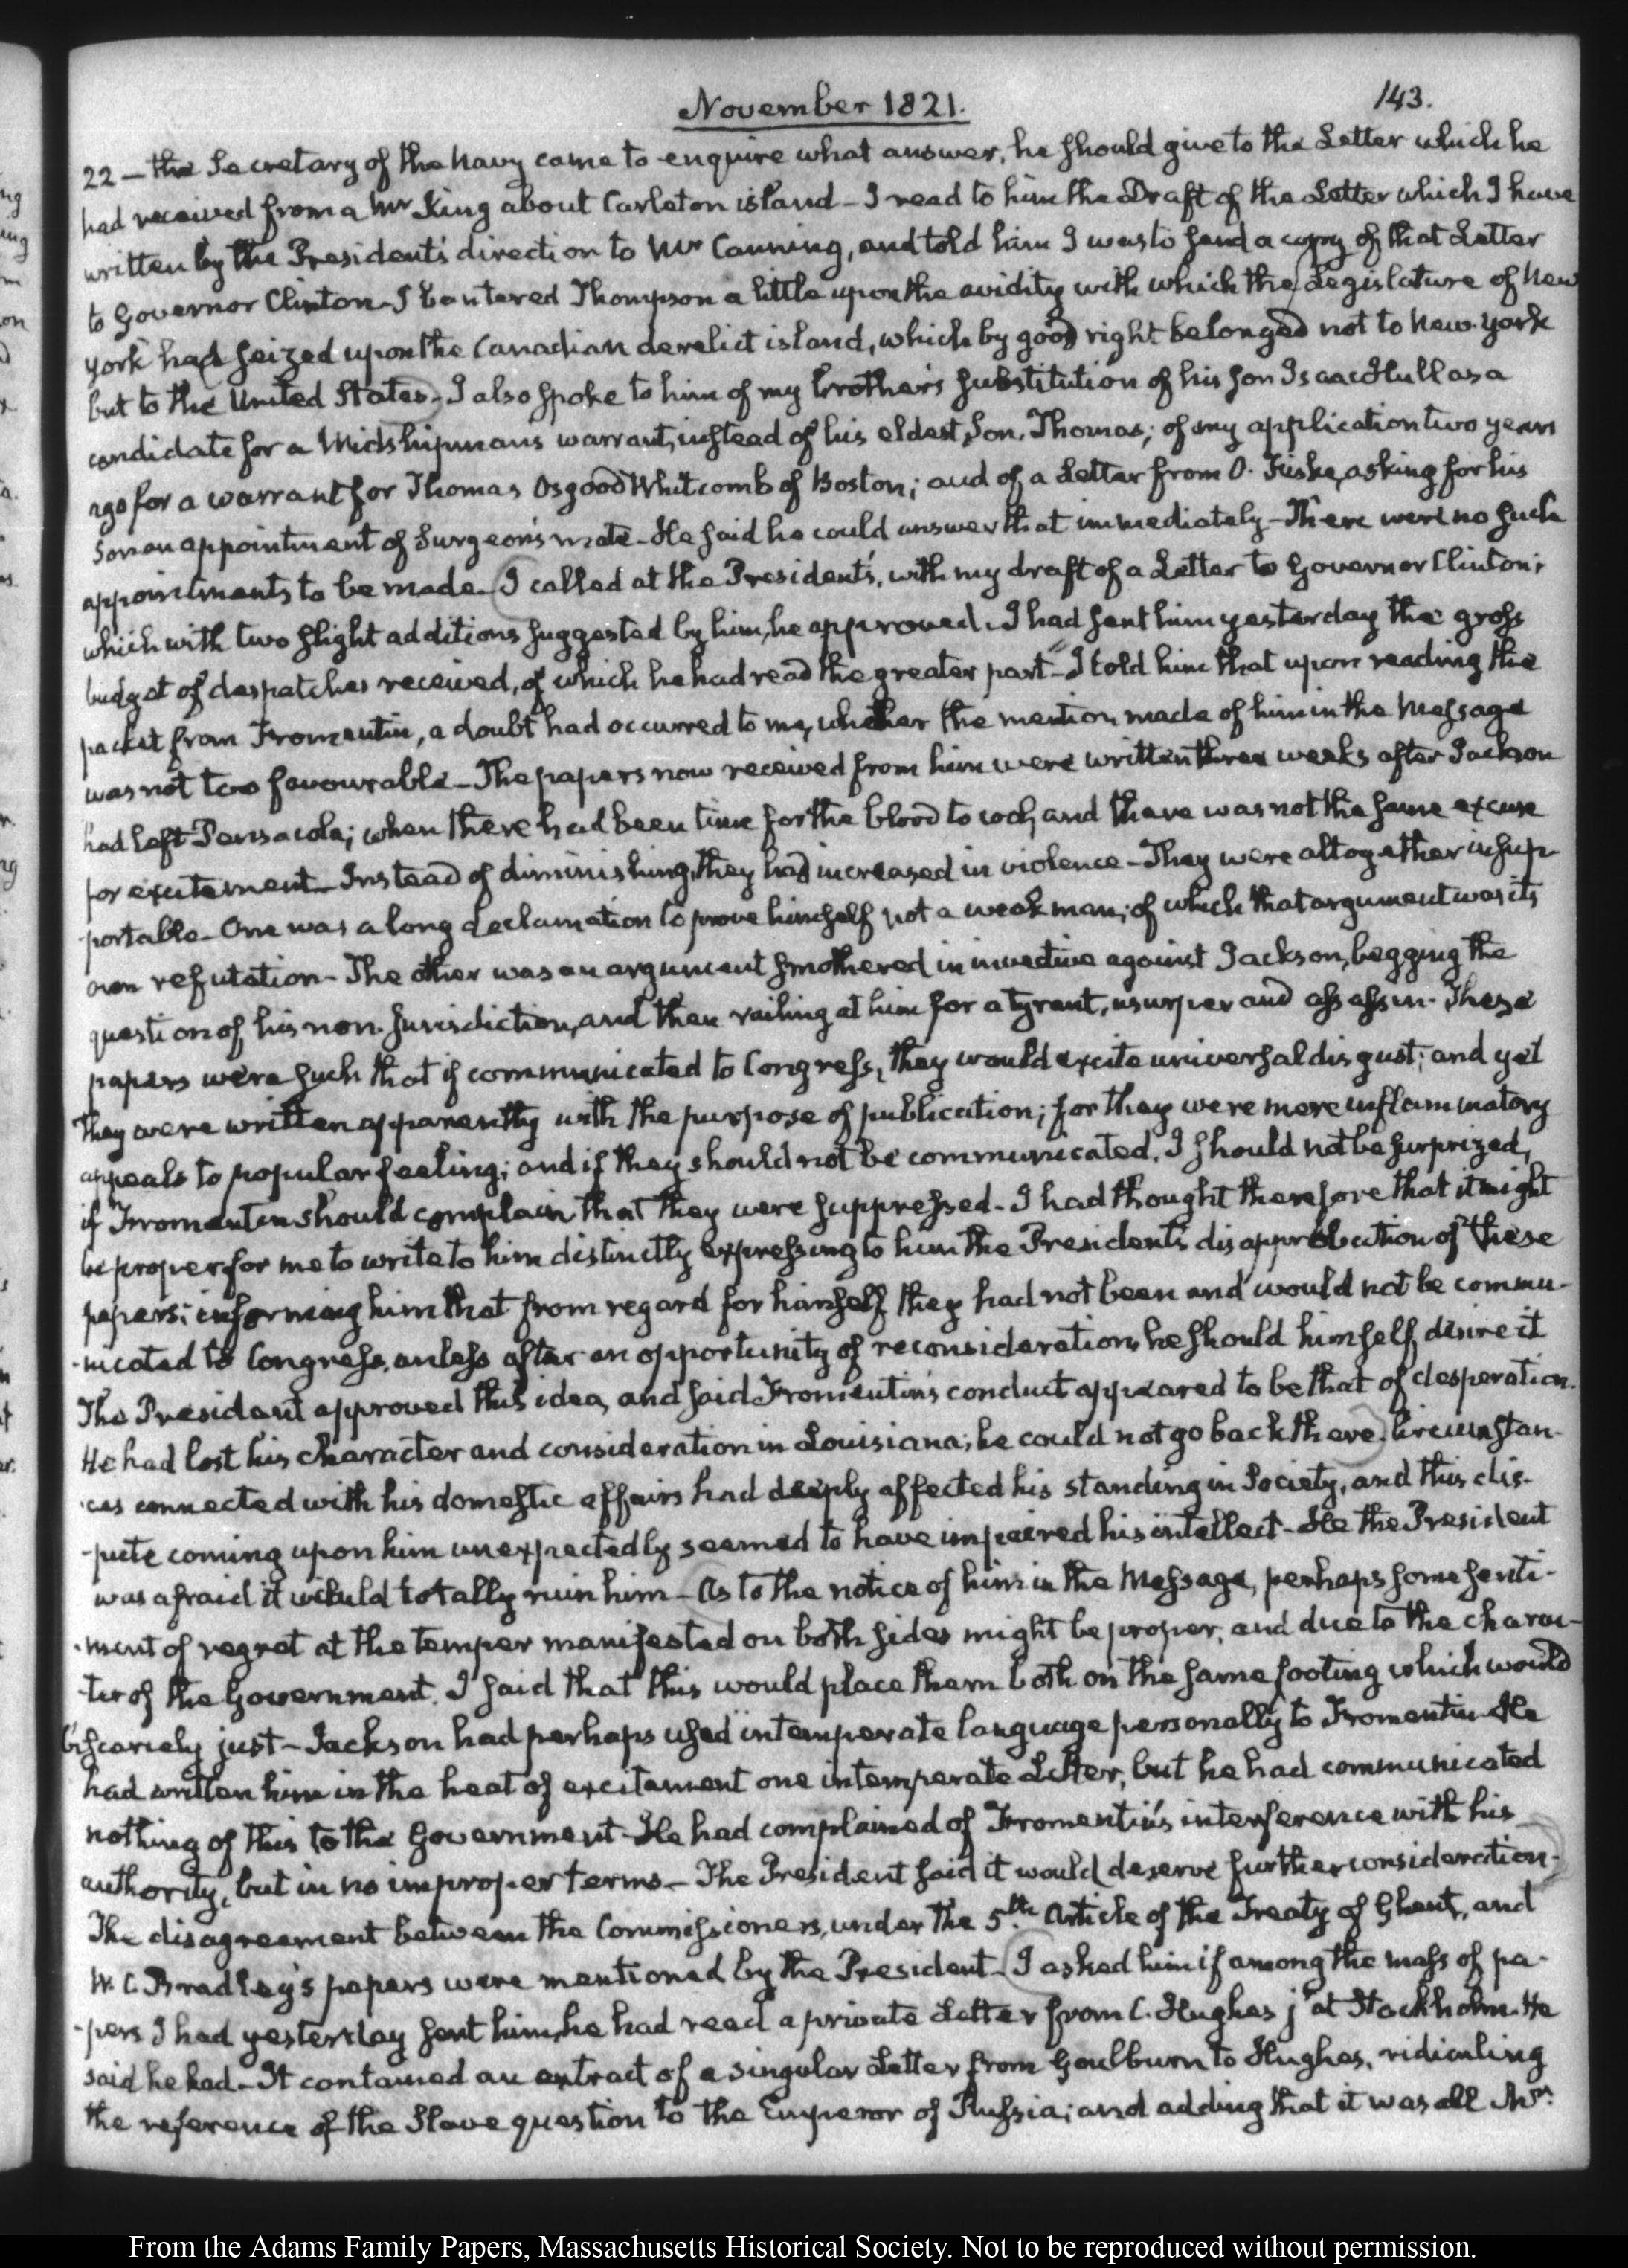 November 1821.
143.
22 — the Secretary of the Navy came to enquire what answer, he should give to the Letter which he
had received from a Mr King about Carleton island – I read to him the Draft of the Letter which I have
written by the President's direction to Mr Canning, and told him I was to send a copy of that Letter
to Governor Clinton – I bantered Thompson a little upon the avidity with which the Legislature of New
York had seized upon the Canadian derelict island, which by good right belonged not to New-York
but to the United States – I also spoke to him of my brother's substitution of his Son Isaac Hull as a
candidate for a Midshipman's warrant, instead of his eldest Son, Thomas; of my application two years
ago for a warrant for Thomas Osgood Whitcomb of Boston; and of a Letter from O. Fiske, asking for his
Son an appointment of Surgeon's mate – He said he could answer that immediately – There were no such
appointments to be made – I called at the President's, with my draft of a Letter to Governor Clinton;
which with two slight additions suggested by him, he approved. I had sent him yesterday the gross
budget of despatches received, of which he had read the greater part – I told him that upon reading the
packet from Fromentin, a doubt had occurred to me, whether the mention made of him in the Message
was not too favourable – The papers now received from him were written three weeks after Jackson
had left Pensacola; when there had been time for the blood to cool, and there was not the same excuse
for excitement – Instead of diminishing, they had increased in violence – They were altogether insup-
-portable – One was a long declamation to prove himself not a weak man; of which that argument was its
own refutation – The other was an argument smothered in invective against Jackson, begging the
question of his non-jurisdiction, and then railing at him for a tyrant, usurper and assassin. These
papers were such that if communicated to Congress, they would excite universal disgust; and yet
they were written apparently with the purpose of publication; for they were mere inflammatory
appeals to popular feeling; and if they should not be communicated, I should not be surprized,
if Fromentin should complain that they were suppressed – I had thought therefore that it might
be proper for me to write to him distinctly expressing to him the President's disapprobation of these
papers; informing him that from regard for himself they had not been and would not be commu-
-nicated to Congress, unless after an opportunity of reconsideration, he should himself, desire it
The President approved this idea, and said Fromentin's conduct appeared to be that of desperation.
He had lost his character and consideration in Louisiana; he could not go back there. Circumstan-
-ces connected with his domestic affairs had deeply affected his standing in Society, and this dis-
-pute coming upon him unexpectedly seemed to have impaired his intellect – He the President
was afraid it would totally ruin him – As to the notice of him in the Message, perhaps some senti-
-ment of regret at the temper manifested on both sides might be proper, and due to the charac-
-ter of the Government. I said that this would place them both on the same footing which would
be scarcely just – Jackson had perhaps used intemperate language personally to Fromentin – He
had written him in the heat of excitement one intemperate Letter, but he had communicated
nothing of this to the Government – He had complained of Fromentin's interference with his
authority, but in no improper terms – The President said it would deserve further consideration –
The disagreement between the Commissioners, under the 5th Article of the Treaty of Ghent, and
W. C. Bradley's papers were mentioned by the President – I asked him if among the mass of pa-
-pers I had yesterday sent him, he had read a private Letter from C. Hughes jr at Stockholm. He
said he had – It contained an extract of a singular Letter from Goulburn to Hughes, ridiculing
the reference of the Slave question to the Emperor of Russia; and adding that it was all Mr.
From the Adams Family Papers, Massachusetts Historical Society. Not to be reproduced without permission.